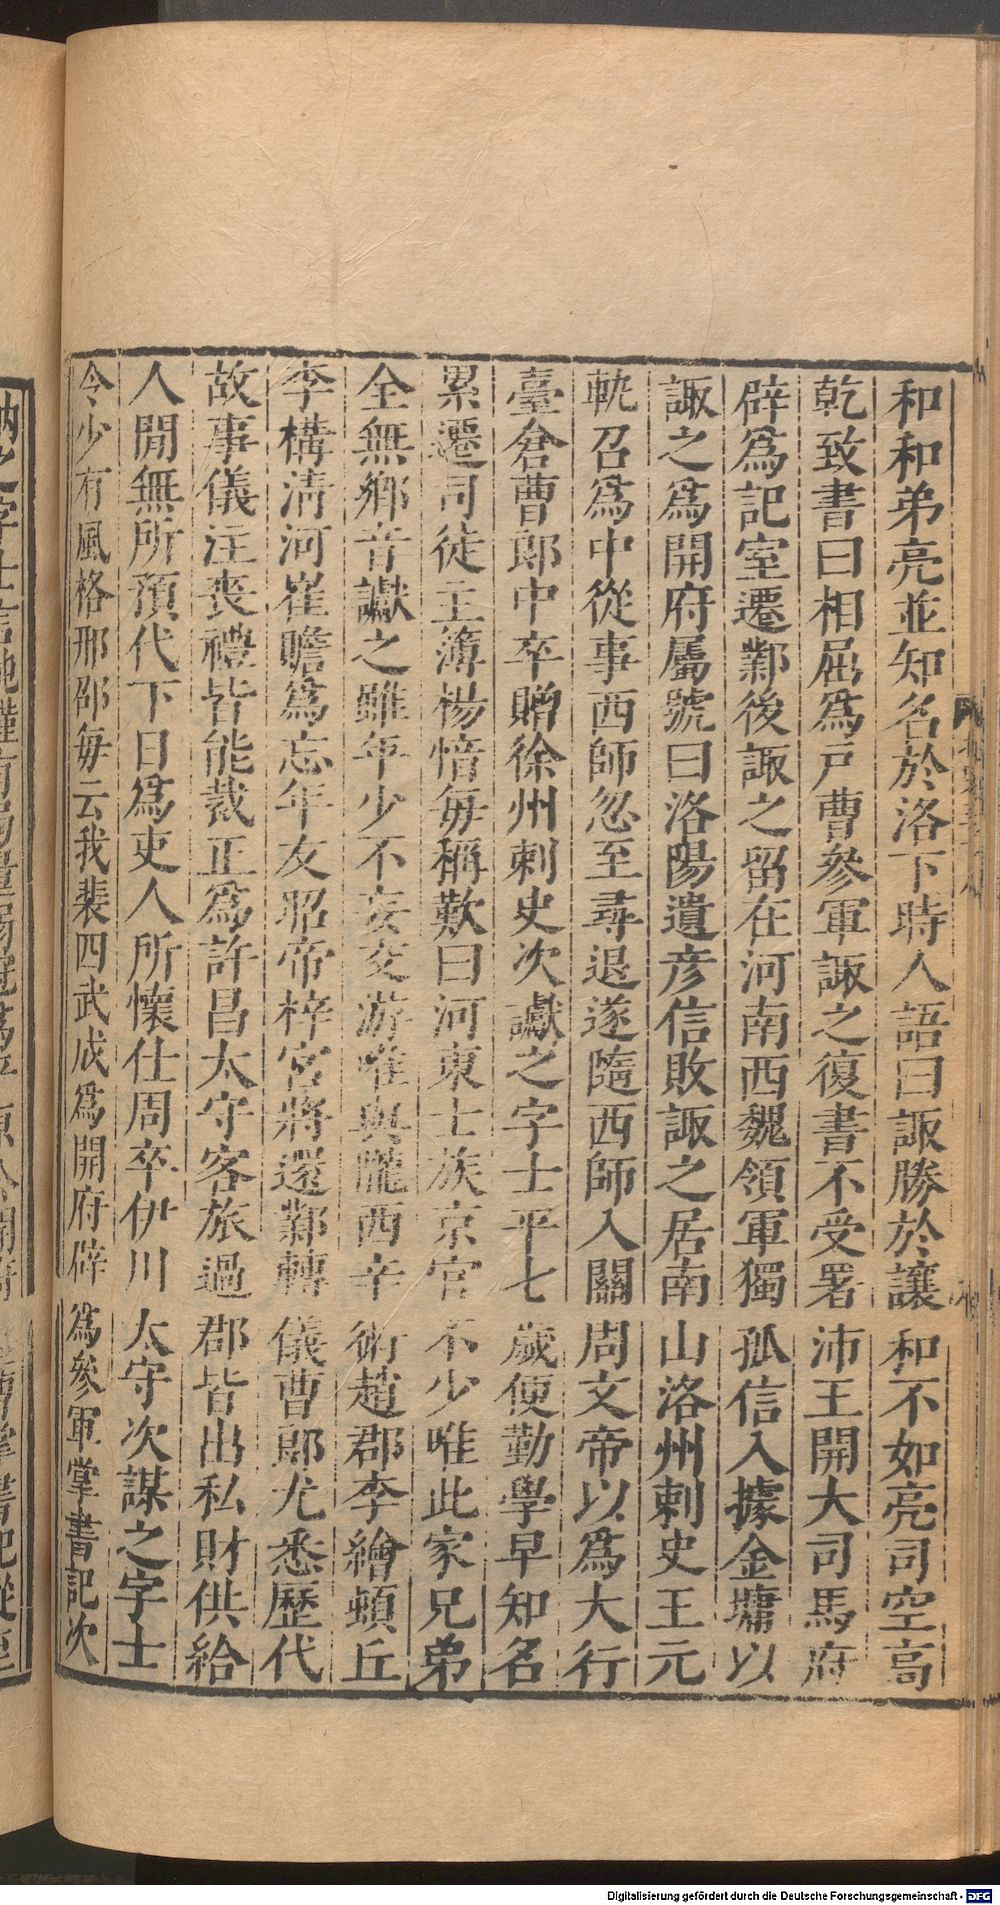 和和弟亮並知名於洛下時人語曰諏勝於讓和不如亮司空高
乾致書曰相屈爲戸曹參軍諏之復書不受署沛王開大司馬府
辟爲記室遷鄴後諏之留在河南西魏領軍獨孤信入據金墉以
諏之爲開府屬號曰洛陽遺彦信敗諏之居南山洛州刺史王元
軌召爲中從事西師忽至尋退遂隨西師入關周文帝以爲大行
臺倉曹郎中卒贈徐州刺史次讞之字士平七歲便勤學早知名
累遷司徒主簿楊愔每稱歎曰河東士族京官不少唯此家兄弟
全無鄉音讞之雖年少不妄交游唯與隴西辛術趙郡李繪頓丘
李構清河崔瞻爲忘年友昭帝梓宮將還鄴轉儀曹郎尤悉歷代
故事儀注喪禮皆能裁正爲許昌太守客旅過郡皆出私財供給
人閒無所預代下日爲吏人所懷仕周卒伊川太守次謀之字士
令少有風格邢邵每云我裴四武成爲開府辟爲參軍掌書記次
Digitalisierung gefördert durch die Deutsche Forschungsgemeinschaft - DFG